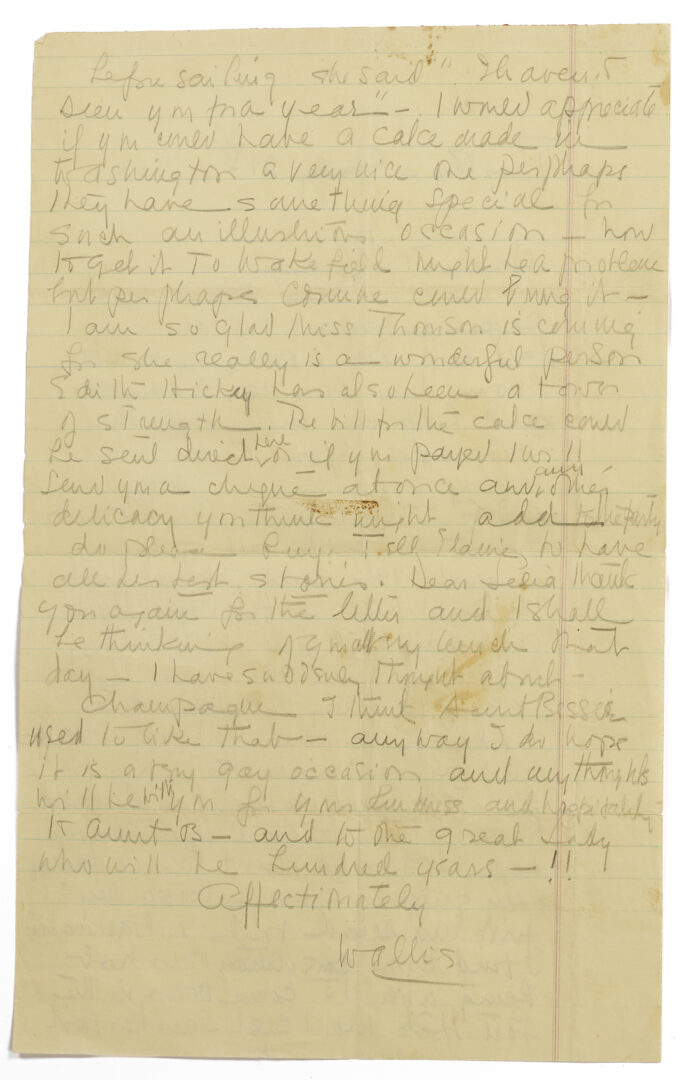 before sailing she said "I haven't
seen you for a year" - I would appreciate
if you could have a cake made in
Washington a very nice one perphaps
they have something special for
such an illustrious occasion - how
to get it to Wakefield might be a problem
but perphapes Corinne could bring it -
I am so glad Miss Thomson is coming
for she really is a wonderful person
Edith Hickey has also been a tower
of strength. The bill for the cake could
be sent direct here or if you payed I will
send you a cheque at once and any other
delicacy you think might add to the party
do please buy. Tell to have
all his best stories. Dear Lelia thank
you again for the letter and I shall
be thinking of you all lunch that
day - I have suddenly thought about -
Champagne I think Aunt Bessie
used to like that - anyway I do hope
it is a very gay occasion and my thoughts
will be with you for your kindness and hospitality
to Aunt B - and to the great lady
who will be hundred years - !!
Affectionately
Wallis